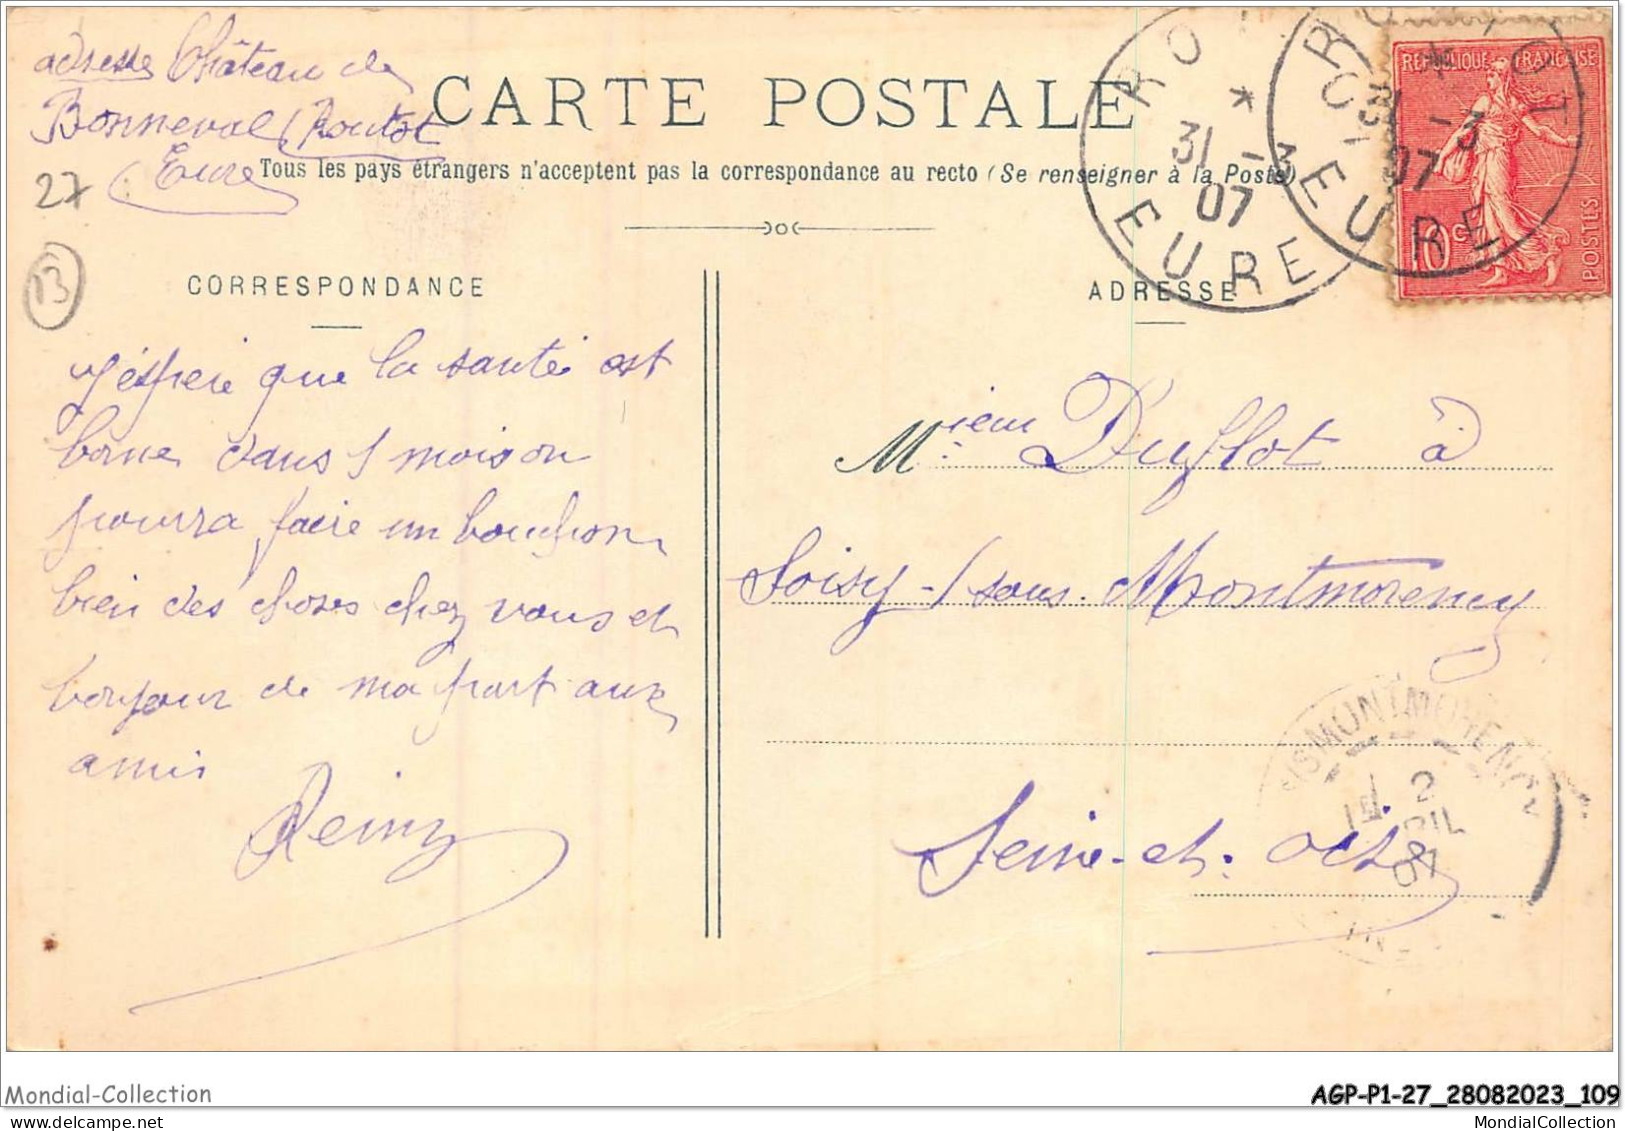 adresse Château de
Bonneval (Routot
Eure
27
13
CARTE POSTALE
Tous les pays étrangers n'acceptent pas la correspondance au recto (Se renseigner à la Poste)
CORRESPONDANCE
ADRESSE
RÉPUBLIQUE FRANÇAISE
10 c
POSTES
ROUTOT
31 -3
07
EURE
ROUTOT
31 -3
07
EURE
j'éspere que la santé est
bonne dans 1 moison
pourra faire un bouchon
bien des choses chez vous et
bonjour de ma part aux
amis
Remy
Mieur Duflot à
Soisy-/sous-Montmorency
Seine-et-Oise
MONTMORENCY
2
07
Mondial-Collection
AGP-P1-27_28082023_109
MondialCollection